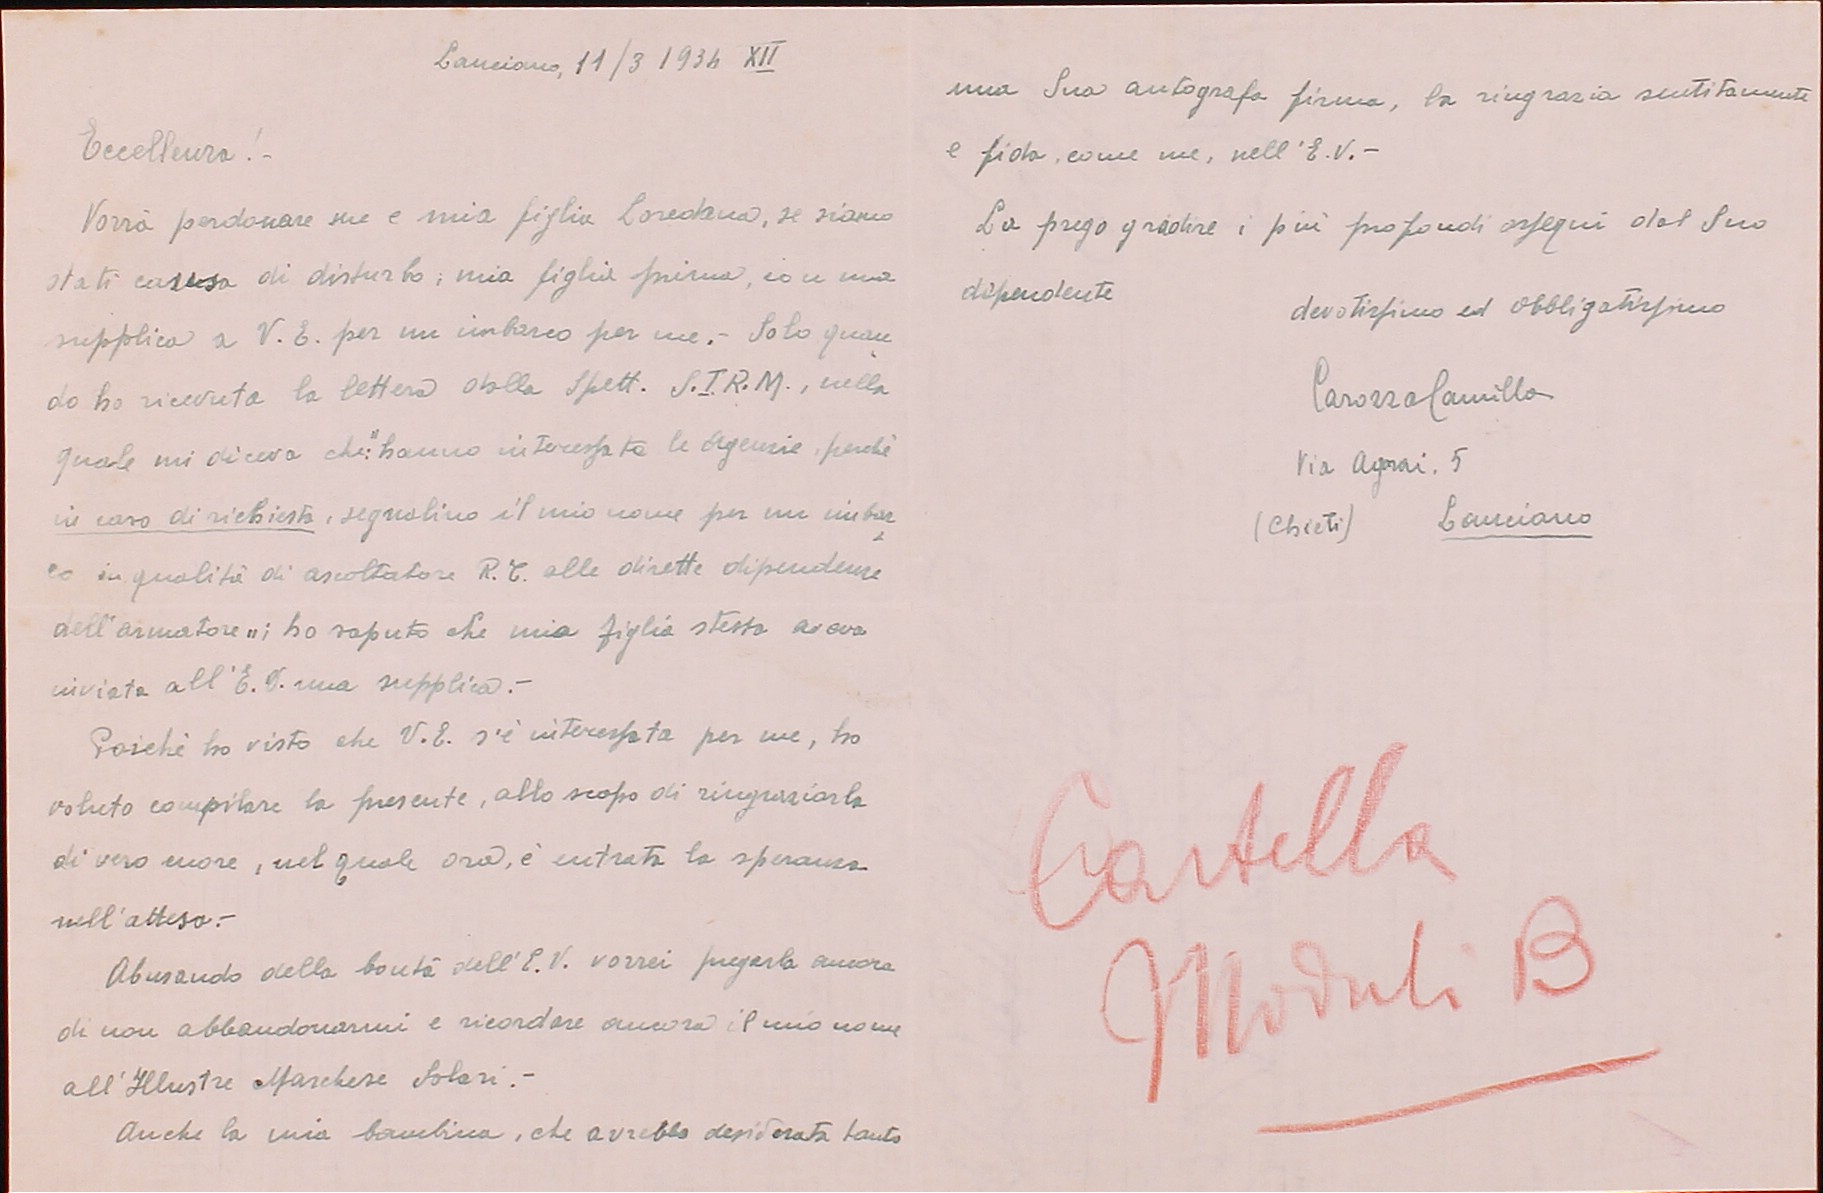 Lanciano, 11/3 1934 XII
Eccellenza!-
Vorrà perdonare me e mia figlia Loredana, se siamo
stati causa di disturbo; mia figlia prima, con una
supplica a V. E. per un imbarco per me.- Solo quan
do ho ricevuta la lettera dalla Spett. S.I.R.M., nella
quale mi diceva che: "hanno interessata le Agenzie, perchè
in caso di richiesta, segnalino il mio nome per un imbar
co in qualità di ascoltatore R.T. alle dirette dipendenze
dell'armatore"; ho saputo che mia figlia stessa aveva
inviata all'E.V. una supplica.-
Poichè ho visto che V.E. s'è interessata per me, ho
voluto compilare la presente, allo scopo di ringraziarla
di vero cuore, nel quale ora, è entrata la speranza
nell'attesa.-
Abusando della bontà dell'E.V. vorrei pregarla ancora
di non abbandonarmi e ricordare ancora il mio nome
all'Illustre Marchese Solari.-
Anche la mia bambina, che avrebbe desiderata tanto
una Sua autografa firma, la ringrazia sentitamente
e fida, come me, nell'E.V.-
La prego gradire i più profondi ossequi dal Suo
dipendente
devotissimo ed obbligatissimo
Carozza Camillo
Via Agorai, 5
(Chieti) Lanciano
Cartella
Moduli B